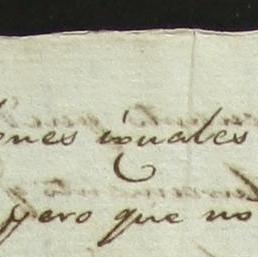 ones iguales
pero que no